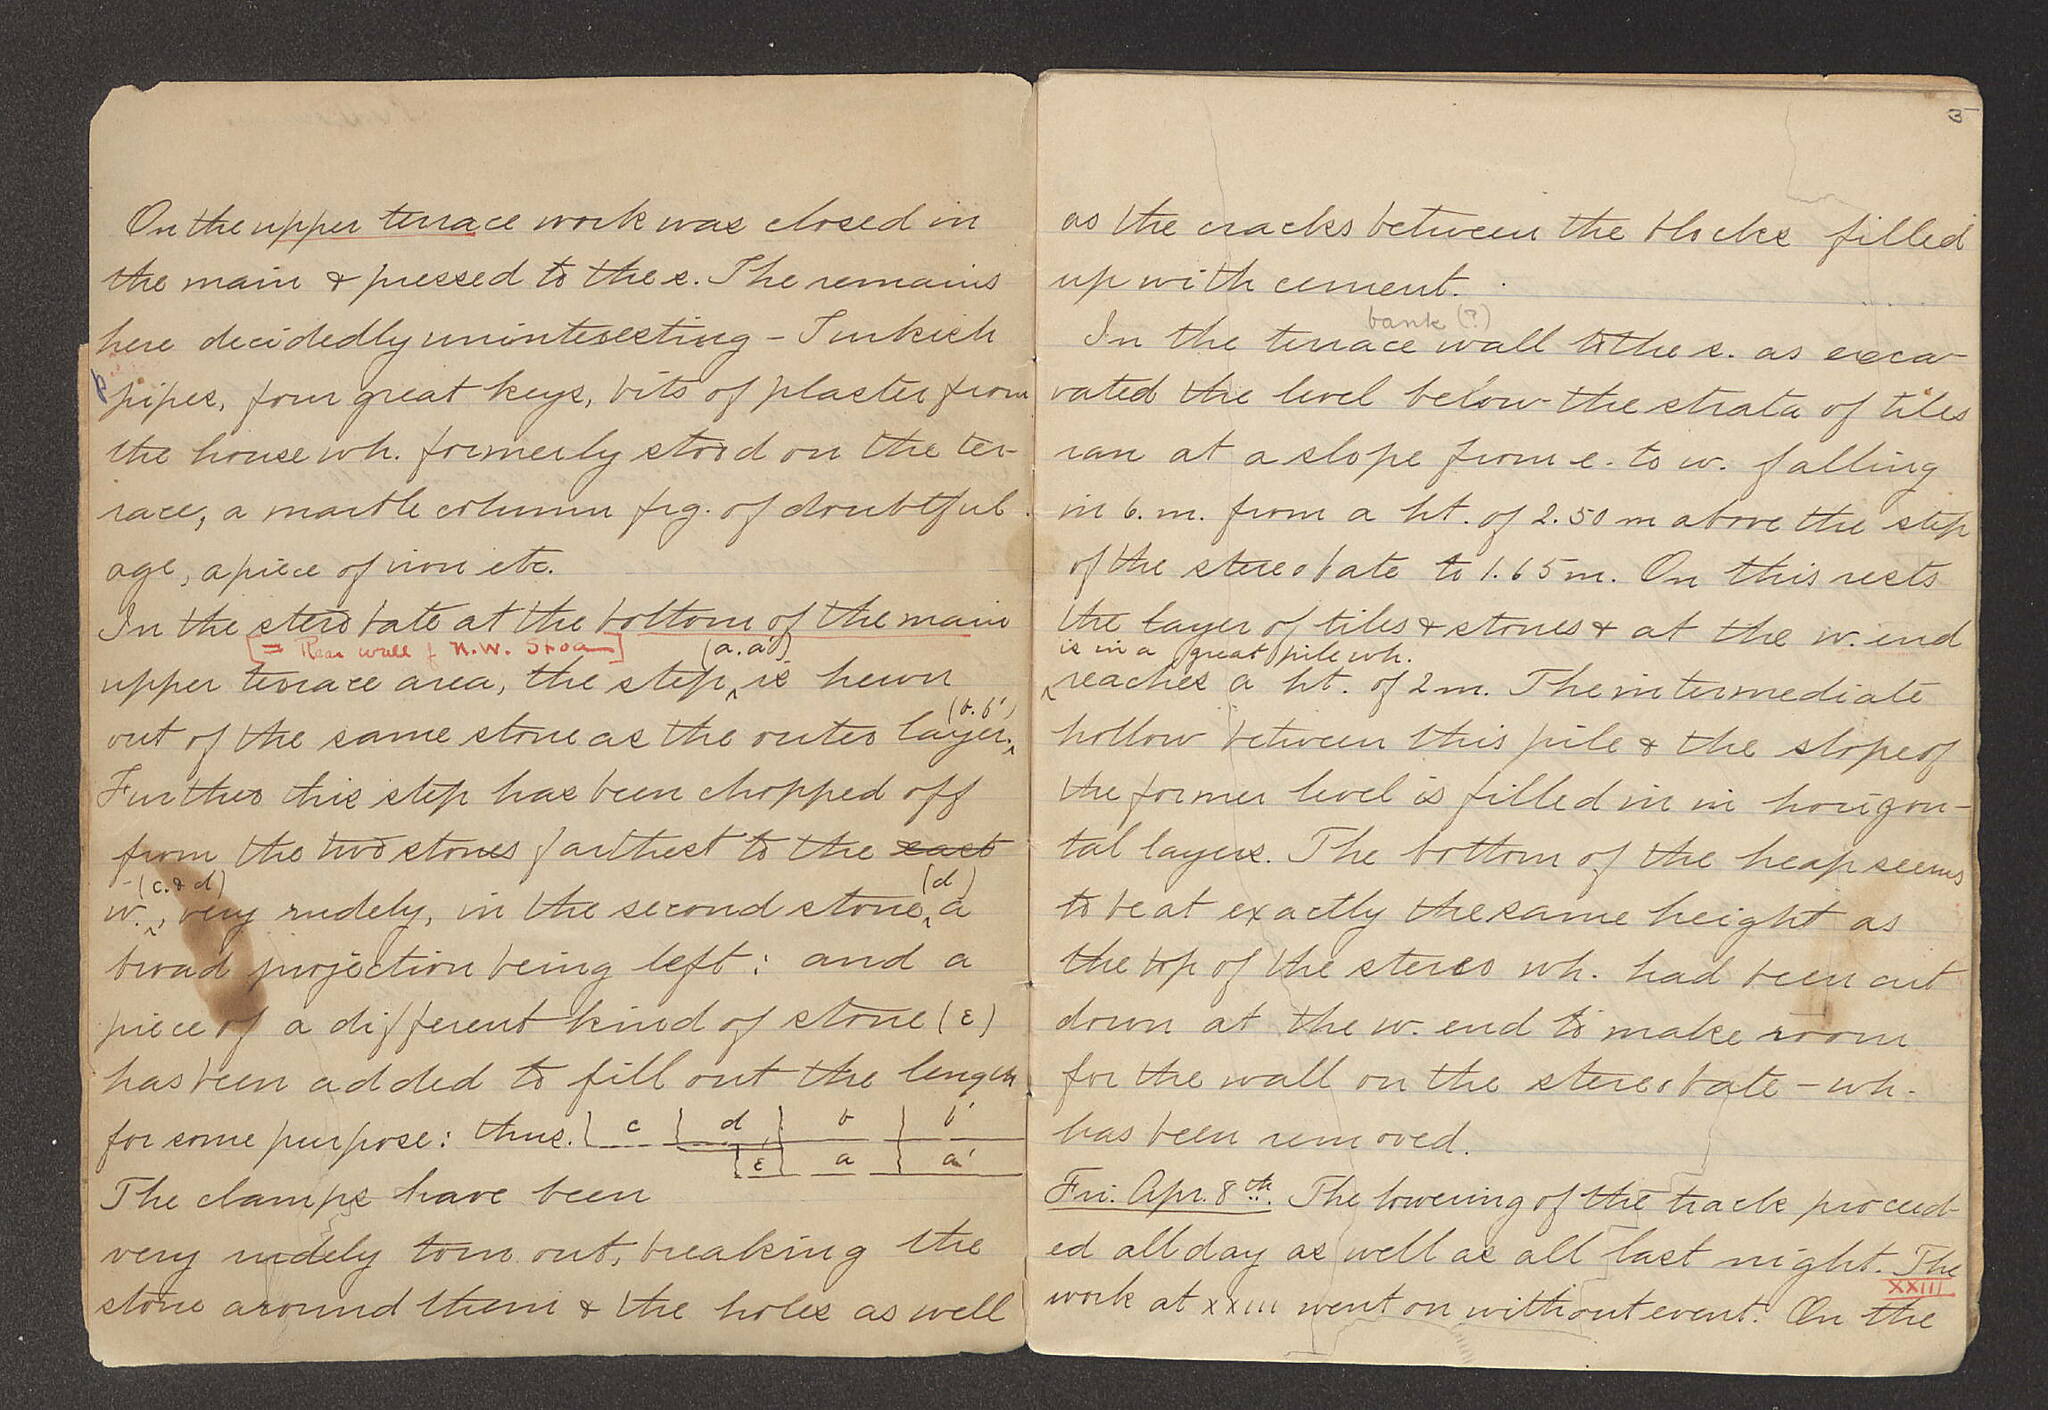 On the upper terrace work was closed in
the main & pressed to the s. The remains
here decidedly uninteresting - Turkish
pipes, four great keys, bits of plaster from
the house wh. formerly stood on the ter-
race, a marble column frg. of doubtful
age, a piece of iron etc.
In the stereobate at the bottom of the main
[= Rear wall of N.W. Stoa] (a.a')
upper terrace area, the step is hewn
(b.b')
out of the same stone as the outer layer.
Further this step has been chopped off
from the two stones farthest to the east
(c. & d) (d)
w., very rudely, in the second stone a
broad projection being left: and a
piece of a different kind of stone (ε)
has been added to fill out the length
for some purpose: thus. c d b b'
ε a a'
The clamps have been
very rudely torn out, breaking the
stone around them & the holes as well
3
as the cracks between the blocks filled
up with cement.
bank (?)
In the terrace wall to the s. as exca-
vated the level below the strata of tiles
ran at a slope from e. to w. falling
in 6. m. from a ht. of 2.50 m above the step
of the stereobate to 1.65 m. On this rests
the layer of tiles & stones & at the w. end
is in a great pile wh.
reaches a ht. of 2 m. The intermediate
hollow between this pile & the slope of
the former level is filled in in horizon-
tal layers. The bottom of the heap seems
to be at exactly the same height as
the top of the stereo wh. had been cut
down at the w. end to make room
for the wall on the stereobate - wh.
has been removed.
Fri. Apr. 8th. The lowering of the track proceed-
ed all day as well as all last night. The
XXIII
work at XXIII went on without event. On the